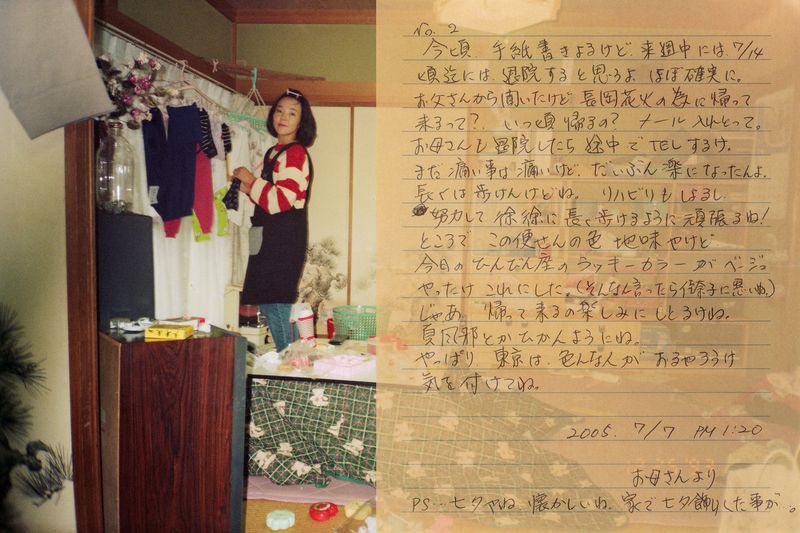 No. 2
今頃 手紙書きよるけど、来週中には、7/14
頃迄には、退院すると思うよ ほぼ確実に。
お父さんから聞いたけど 長岡花火の為に帰って
来るって？. いつ頃帰るの？ メール入れとって。
お母さんも 退院したら 途中でTELするけ。
まだ痛い事は痛いけど、だいぶん楽になったんよ。
長くは歩けんけどね。リハビリもしよるし
努力して 徐徐に長く歩けるように頑張るね！
ところで この便せんの色 地味やけど
今日のてんびん座のラッキーカラーがベージュ
やったけ これにした。(そんなん言ったら佳奈子に悪いね。)
じゃあ、帰って来るの楽しみにしとるけね。
夏風邪とかひかんようにね。
やっぱり、東京は、色んな人がおるやろうけ
気を付けてね。
2005. 7/7 PM 1:20
お母さんより
PS… 七夕やね。懐かしいね、家で七夕飾りした事が…。